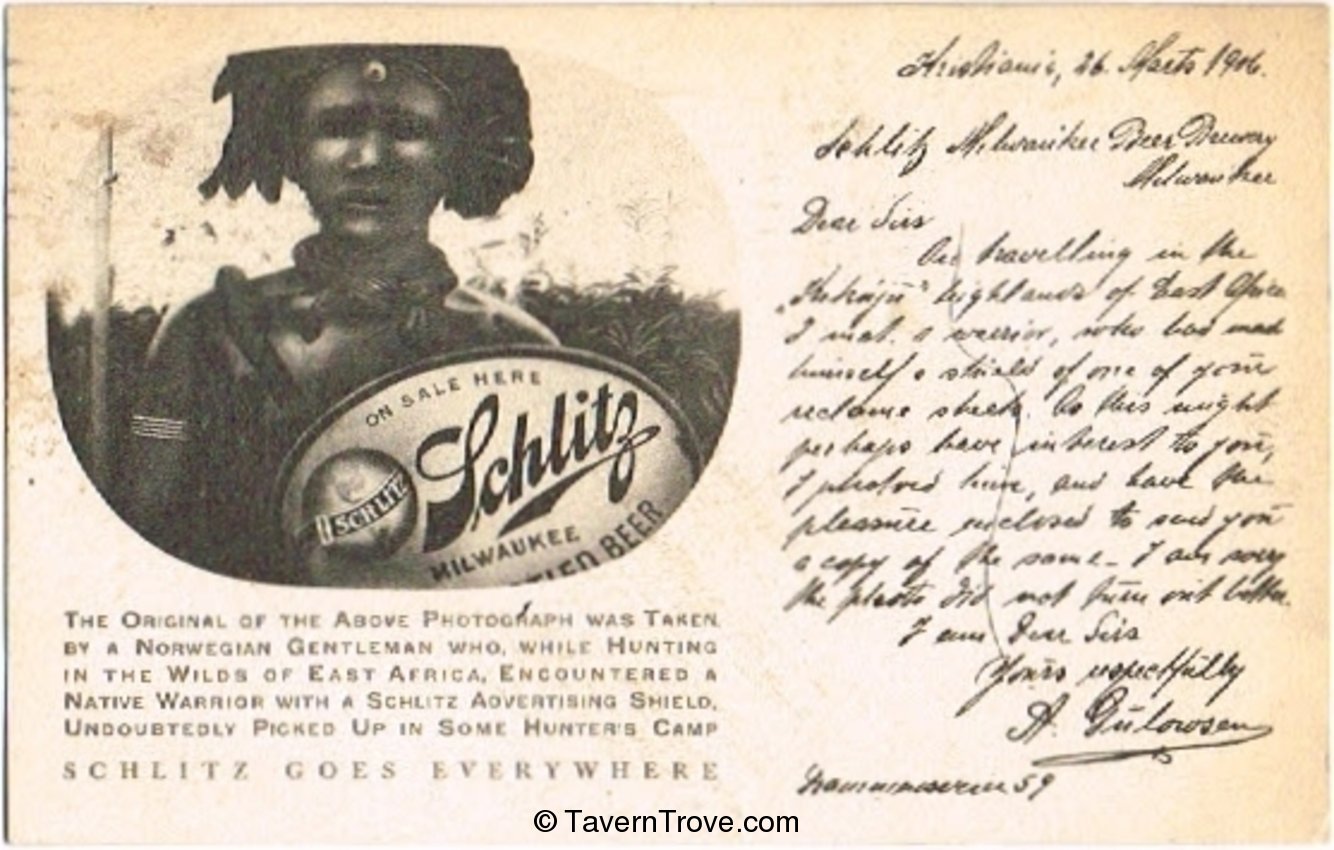 ON SALE HERE
Schlitz
SCHLITZ
MILWAUKEE
BEER
THE ORIGINAL OF THE ABOVE PHOTOGRAPH WAS TAKEN
BY A NORWEGIAN GENTLEMAN WHO, WHILE HUNTING
IN THE WILDS OF EAST AFRICA, ENCOUNTERED A
NATIVE WARRIOR WITH A SCHLITZ ADVERTISING SHIELD,
UNDOUBTEDLY PICKED UP IN SOME HUNTER'S CAMP
SCHLITZ GOES EVERYWHERE
Kristiania, 26. Marts 1906.
Schlitz Milwaukee Beer Brewery
Milwaukee
Dear Sirs
On travelling in the
highlands of East Africa
I met a warrior, who had made
himself a shield of one of your
reclame sheets. As this might
perhaps have interest to you,
I photoed him, and have the
pleasure enclosed to send you
a copy of the same. I am sorry
the photo did not turn out better.
I am Dear Sirs
Yours respectfully
A. Gulowsen
59
© TavernTrove.com